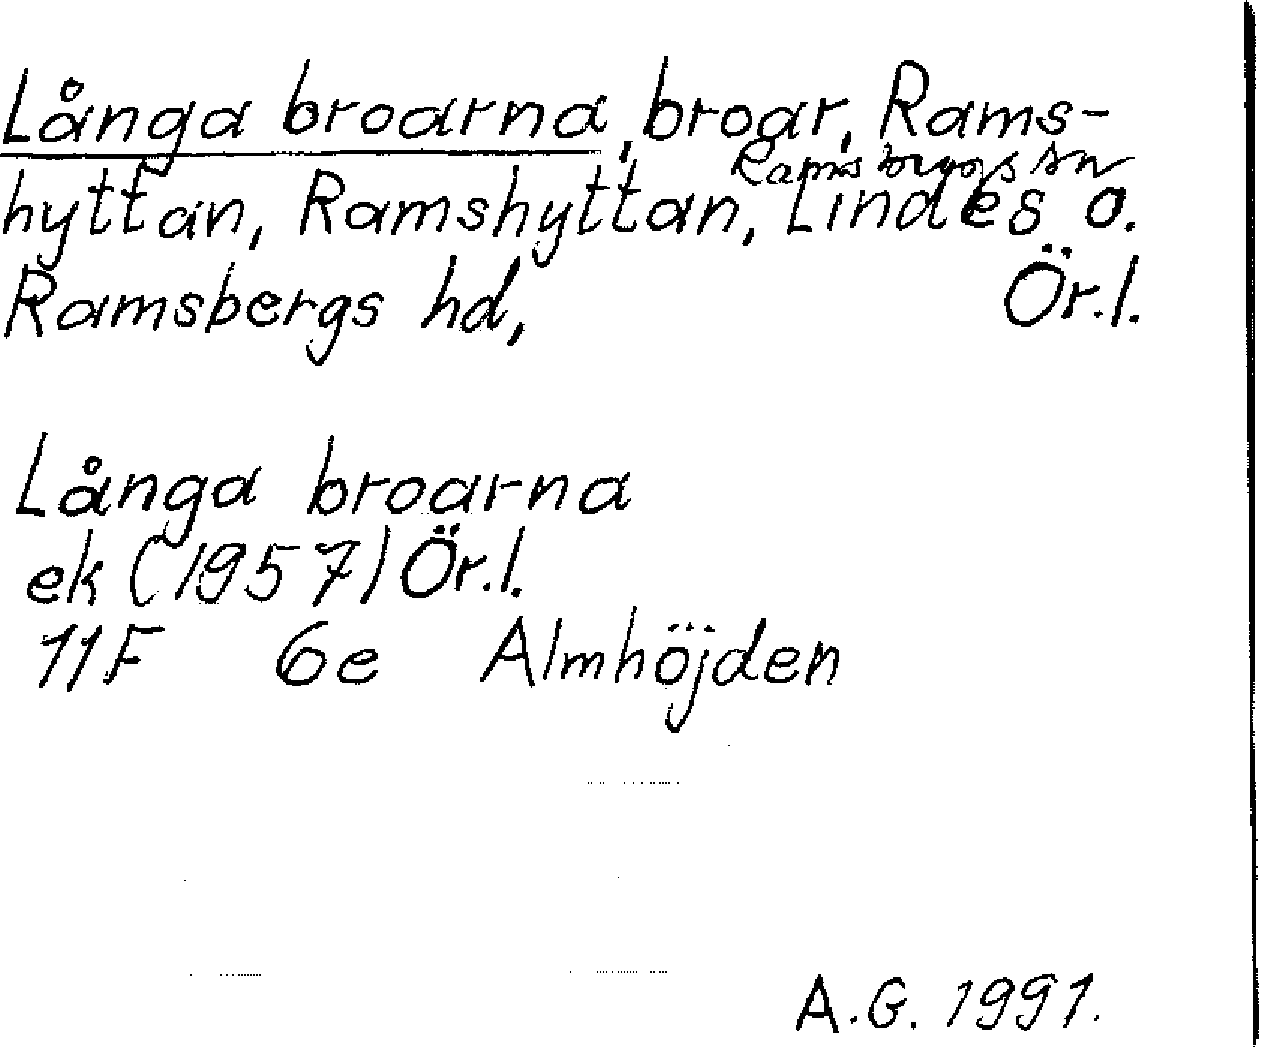 Långa broarna, broar, Rams-
Ramsbergs sn
hyttan, Ramshyttan, Lindes o.
Ramsbergs hd, Ör.l.
Långa broarna
ek (1957) Ör.l.
11F 6e Almhöjden
A.G. 1991.